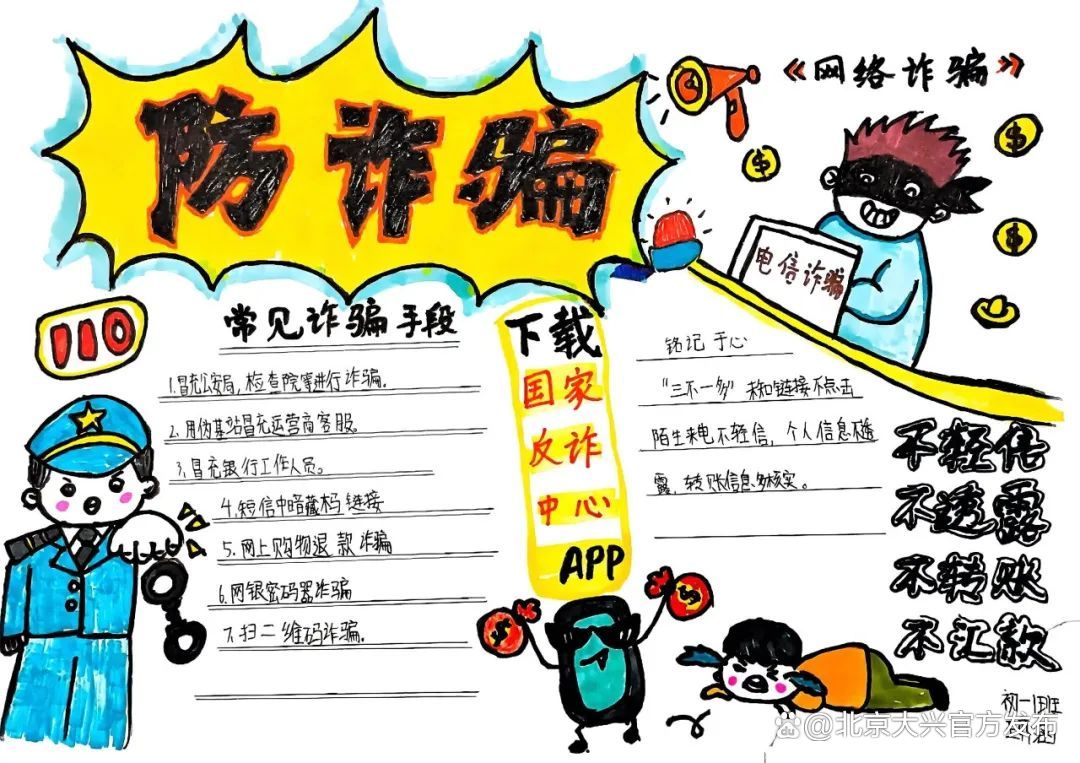 防诈骗
《网络诈骗》
电信诈骗
110
常见诈骗手段
1.冒充公安局，检查院等进行诈骗。
2.用伪基站冒充运营商客服。
3.冒充银行工作人员。
4.短信中暗藏木马链接
5.网上购物退款诈骗
6.网银密码器诈骗
7.扫二维码诈骗。
下载
国家
反诈
中心
APP
铭记于心
“三不一多”未知链接不点击
陌生来电不轻信，个人信息不透
露，转账信息多核实。
不轻信
不透露
不转账
不汇款
初一1班
@北京大兴官方发布